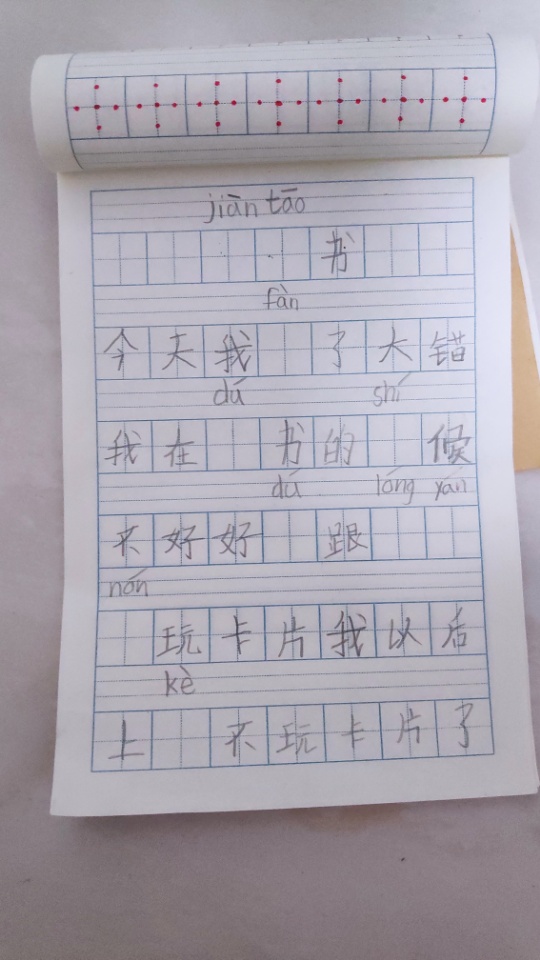 jiàn tāo
书
fàn
今天我 了大错
dú shí
我在 书的 候
dú lóng yán
不好好 跟
nón
玩卡片我以后
kè
上 不玩卡片了